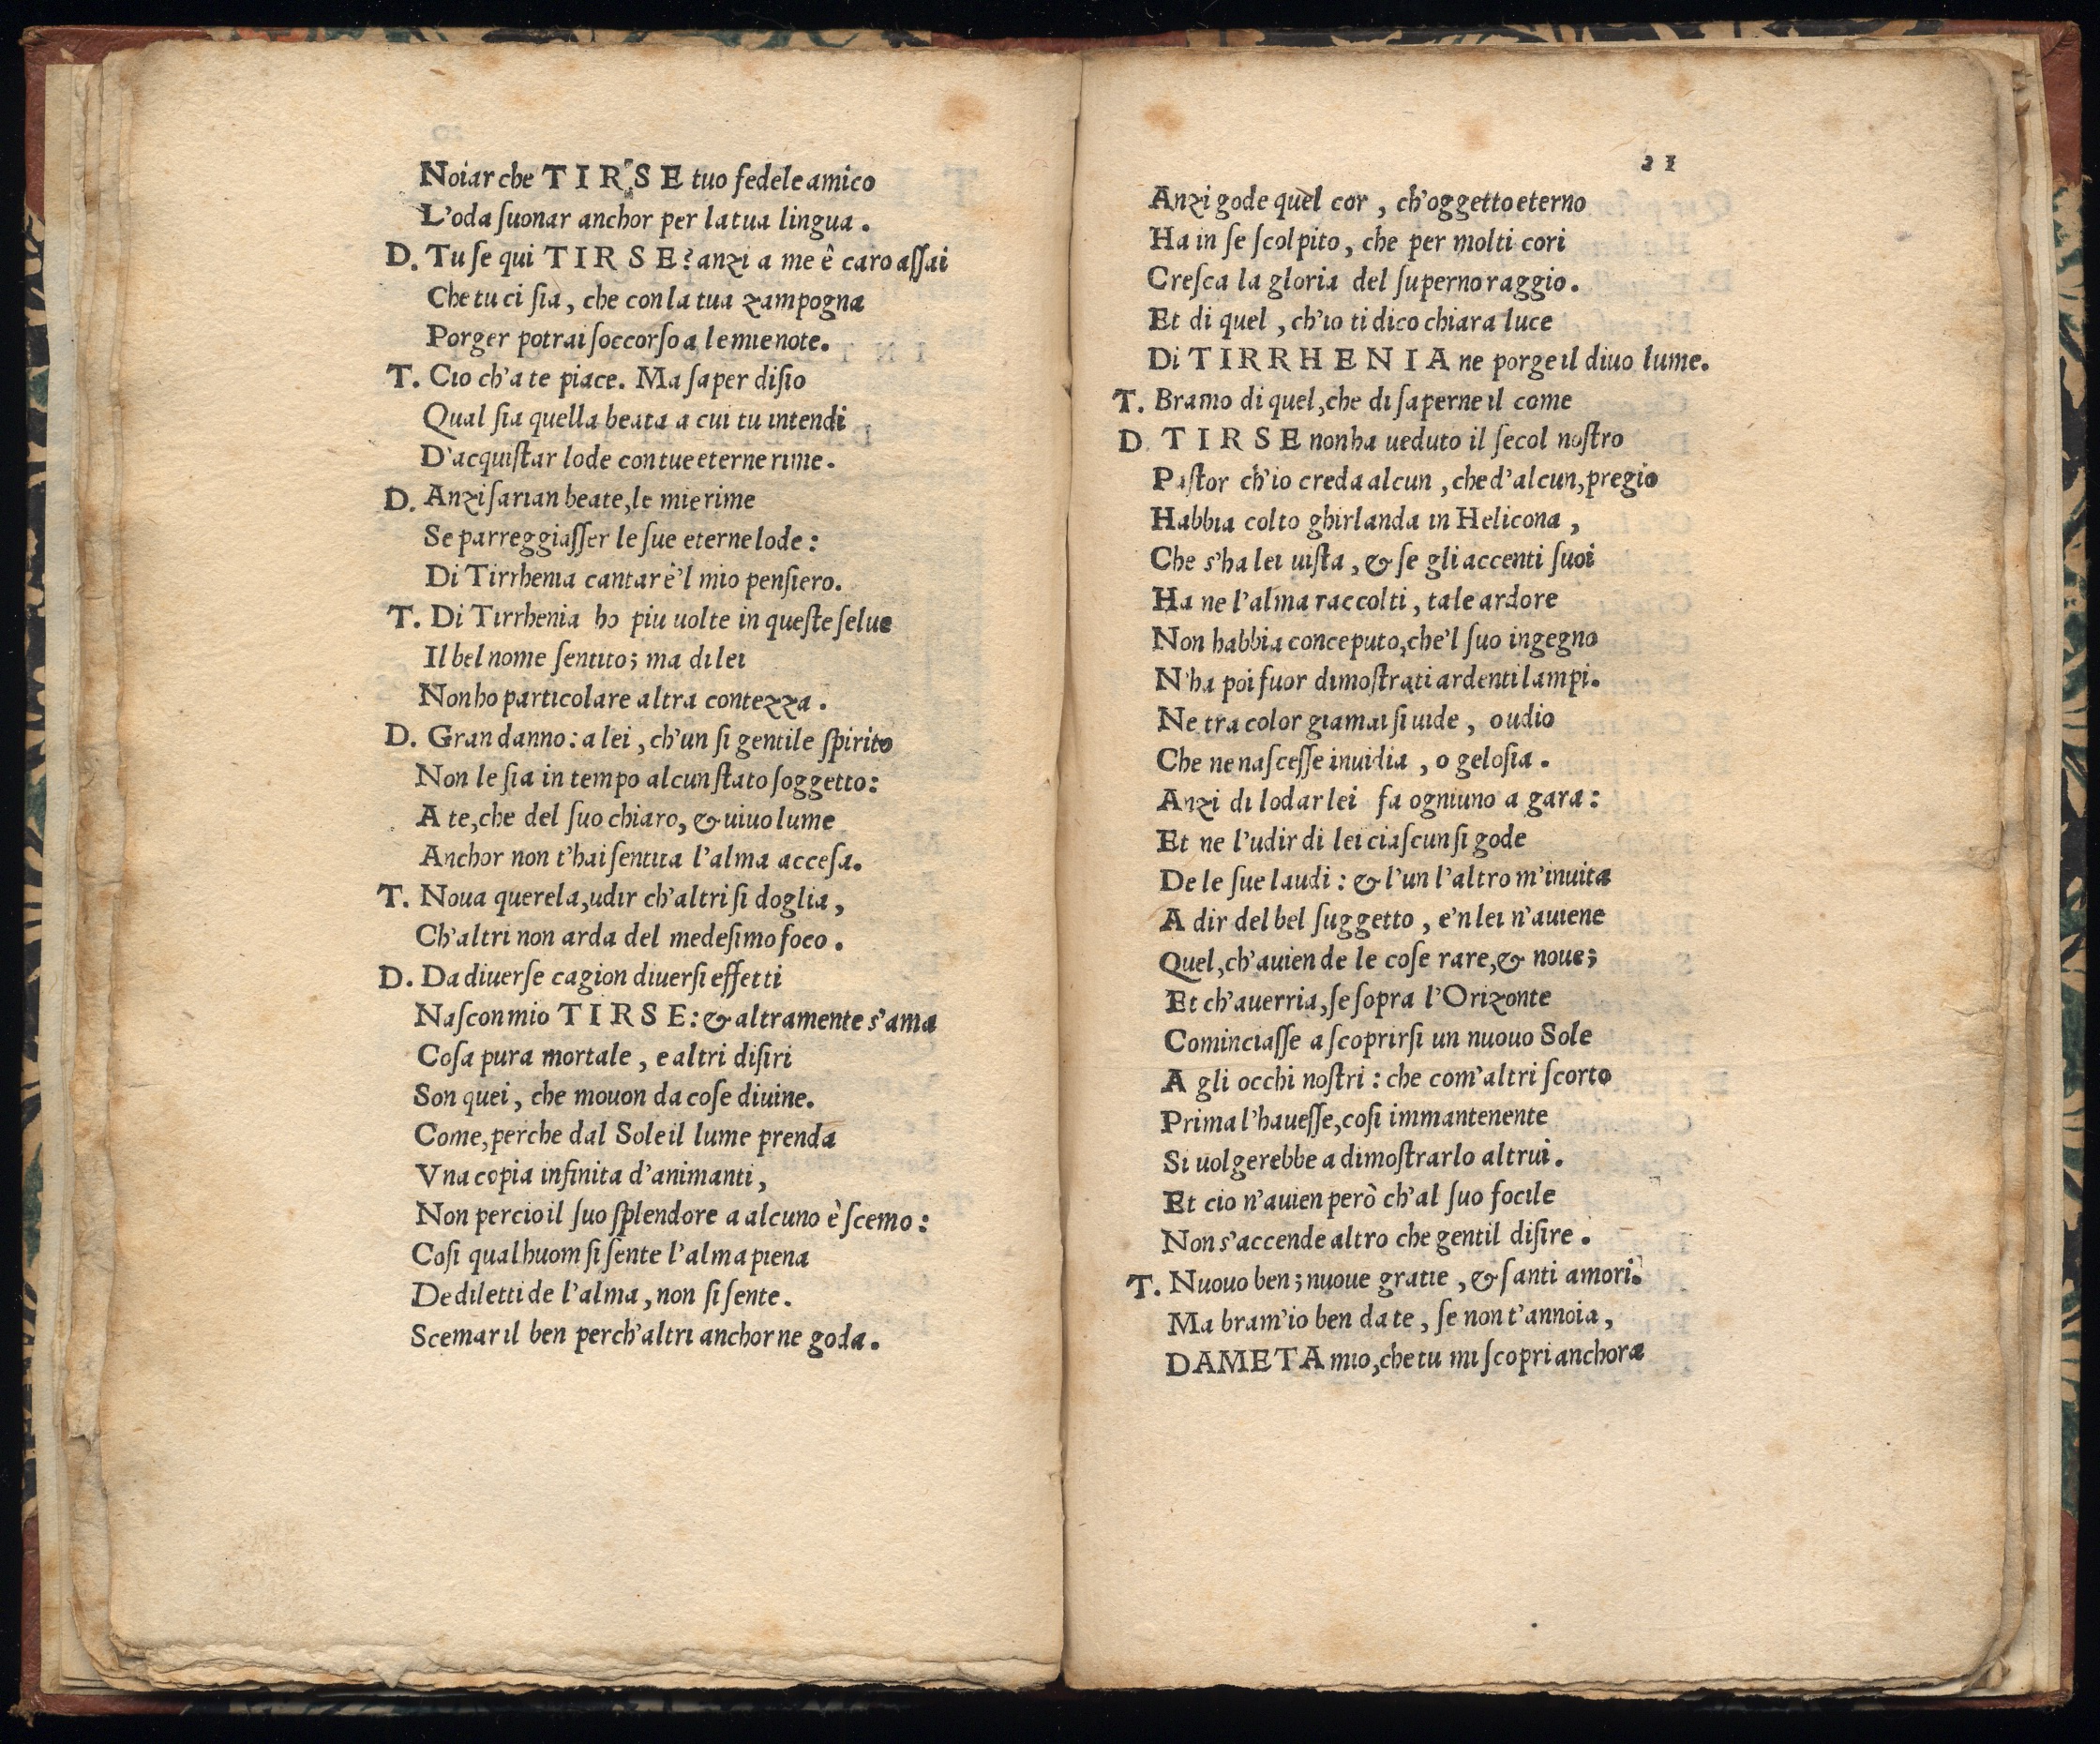 Noiar che TIRSE tuo fedele amico
L'oda ſuonar anchor per la tua lingua.
D. Tu ſe qui TIRSE? anzi a me ê caro aſſai
Che tu ci ſia, che con la tua zampogna
Porger potrai ſoccorſo a le mie note.
T. Cio ch'a te piace. Ma ſaper diſio
Qual ſia quella beata a cui tu intendi
D'acquiſtar lode con tue eterne rime.
D. Anzi ſarian beate, le mie rime
Se parreggiaſſer le ſue eterne lode:
Di Tirrhenia cantar ê'l mio penſiero.
T. Di Tirrhenia ho piu uolte in queſte ſelue
Il bel nome ſentito; ma di lei
Non ho particolare altra contezza.
D. Gran danno: a lei, ch'un ſi gentile ſpirito
Non le ſia in tempo alcun ſtato ſoggetto:
A te, che del ſuo chiaro, & uiuo lume
Anchor non t'hai ſentita l'alma acceſa.
T. Noua querela, udir ch'altri ſi doglia,
Ch'altri non arda del medeſimo foco.
D. Da diuerſe cagion diuerſi effetti
Naſcon mio TIRSE: & altramente s'ama
Coſa pura mortale, e altri diſiri
Son quei, che mouon da coſe diuine.
Come, perche dal Sole il lume prenda
Vna copia infinita d'animanti,
Non percio il ſuo ſplendore a alcuno è ſcemo:
Coſi qual huom ſi ſente l'alma piena
De diletti de l'alma, non ſi ſente.
Scemar il ben perch'altri anchor ne goda.
21
Anzi gode quel cor, ch'oggetto eterno
Ha in ſe ſcolpito, che per molti cori
Creſca la gloria del ſuperno raggio.
Et di quel, ch'io ti dico chiara luce
Di TIRRHENIA ne porge il diuo lume.
T. Bramo di quel, che di ſaperne il come
D. TIRSE non ha ueduto il ſecol noſtro
Paſtor ch'io creda alcun, che d'alcun, pregio
Habbia colto ghirlanda in Helicona,
Che s'ha lei uiſta, & ſe gli accenti ſuoi
Ha ne l'alma raccolti, tale ardore
Non habbia conceputo, che'l ſuo ingegno
N'ha poi fuor dimoſtrati ardenti lampi.
Ne tra color giamai ſi uide, o udio
Che ne naſceſſe inuidia, o geloſia.
Anzi di lodar lei fa ogniuno a gara:
Et ne l'udir di lei ciaſcun ſi gode
De le ſue laudi: & l'un l'altro m'inuita
A dir del bel ſuggetto, e'n lei n'auiene
Quel, ch'auien de le coſe rare, & noue;
Et ch'auerria, ſe ſopra l'Orizonte
Cominciaſſe a ſcoprirſi un nuouo Sole
A gli occhi noſtri: che com'altri ſcorto
Prima l'haueſſe, coſi immantenente
Si uolgerebbe a dimoſtrarlo altrui.
Et cio n'auien però ch'al ſuo focile
Non s'accende altro che gentil diſire.
T. Nuouo ben; nuoue gratie, & ſanti amori.
Ma bram'io ben da te, ſe non t'annoia,
DAMETA mio, che tu mi ſcopri anchora